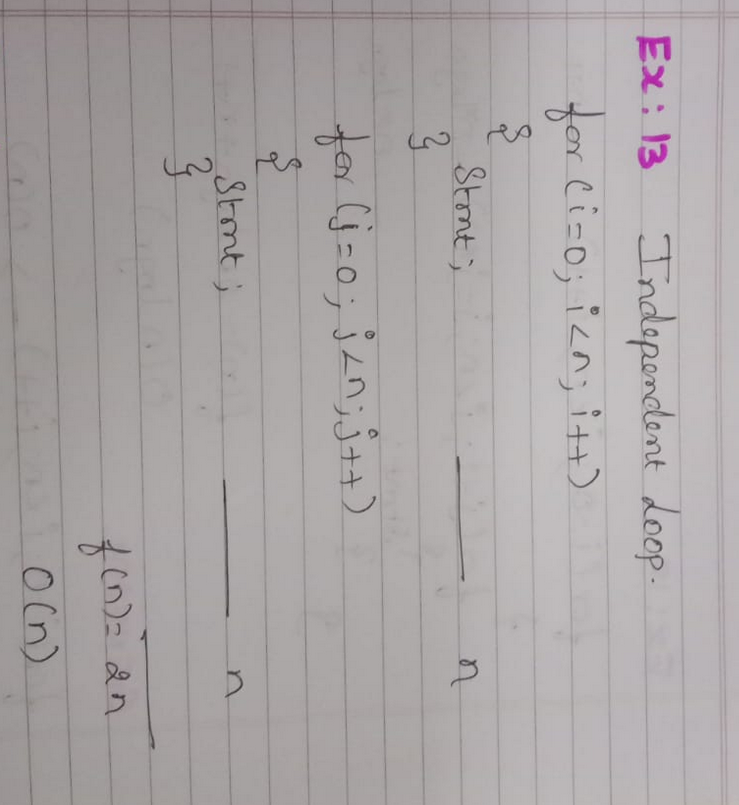 Ex: 13 Independent Loop.
for (i=0; i<n; i++)
{
Stmt; n
}
for (j=0; j<n; j++)
{
Stmt; n
}
f(n)= 2n
O(n)